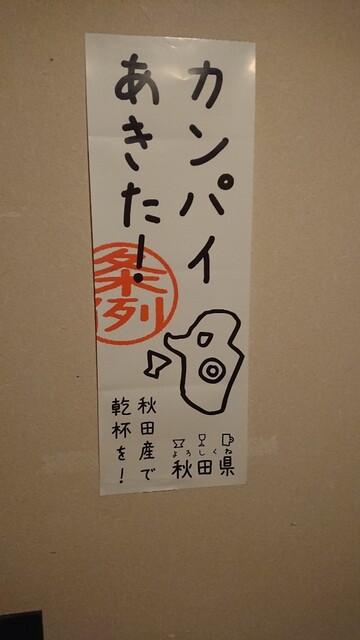 カンパイ
あきた!
条例
秋田産で
乾杯を!
よろしくね
秋田県